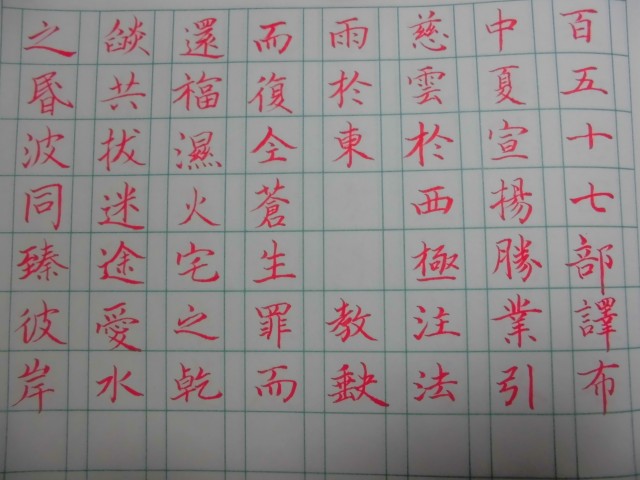 百五十七部譯布
中夏宣揚勝業引
慈雲於西極注法
雨於東教缺
而復全蒼生罪而
還福濕火宅之乾
燄共拔迷途愛水
之昬波同臻彼岸